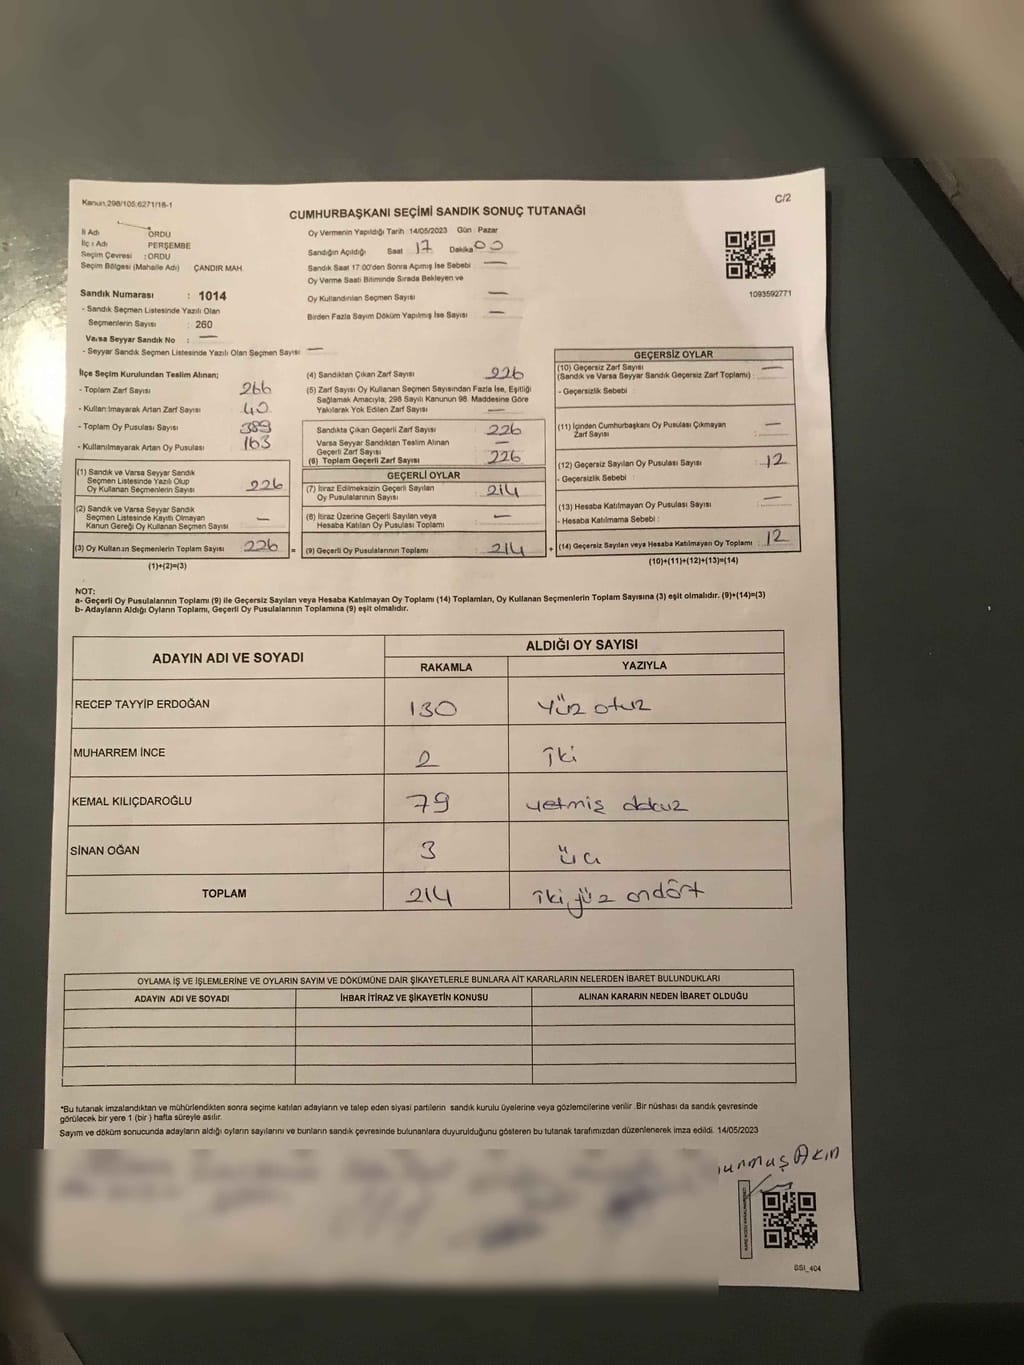 Kanun,298/105;6271/18-1
C/2
CUMHURBAŞKANI SEÇİMİ SANDIK SONUÇ TUTANAĞI
İl Adı ORDU
İlçe Adı PERŞEMBE
Seçim Çevresi : ORDU
Seçim Bölgesi (Mahalle Adı) ÇANDIR MAH.
Sandık Numarası : 1014
- Sandık Seçmen Listesinde Yazılı Olan
Seçmenlerin Sayısı : 260
Varsa Seyyar Sandık No : —
- Seyyar Sandık Seçmen Listesinde Yazılı Olan Seçmen Sayısı —
Oy Vermenin Yapıldığı Tarih 14/05/2023 Gün : Pazar
Sandığın Açıldığı Saat 17 Dakika 00
Sandık Saat 17:00'den Sonra Açımış İse Sebebi —
Oy Verme Saati Bitiminde Sırada Bekleyen ve
Oy Kullandırılan Seçmen Sayısı —
Birden Fazla Sayım Döküm Yapılmış İse Sayısı —
1093592771
İlçe Seçim Kurulundan Teslim Alınan;
- Toplam Zarf Sayısı 266
- Kullanılmayarak Artan Zarf Sayısı 40
- Toplam Oy Pusulası Sayısı 389
- Kullanılmayarak Artan Oy Pusulası 163
(1) Sandık ve Varsa Seyyar Sandık
Seçmen Listesinde Yazılı Olup
Oy Kullanan Seçmenlerin Sayısı 226
(2) Sandık ve Varsa Seyyar Sandık
Seçmen Listesinde Kayıtlı Olmayan
Kanun Gereği Oy Kullanan Seçmen Sayısı —
(3) Oy Kullanan Seçmenlerin Toplam Sayısı 226 =
(1)+(2)=(3)
(4) Sandıktan Çıkan Zarf Sayısı 226
(5) Zarf Sayısı Oy Kullanan Seçmen Sayısından Fazla İse, Eşitliği
Sağlamak Amacıyla, 298 Sayılı Kanunun 98. Maddesine Göre
Yakılarak Yok Edilen Zarf Sayısı —
Sandıkta Çıkan Geçerli Zarf Sayısı 226
Varsa Seyyar Sandıktan Teslim Alınan
Geçerli Zarf Sayısı —
(6) Toplam Geçerli Zarf Sayısı 226
GEÇERLİ OYLAR
(7) İtiraz Edilmeksizin Geçerli Sayılan
Oy Pusulalarının Sayısı 214
(8) İtiraz Üzerine Geçerli Sayılan veya
Hesaba Katılan Oy Pusulası Toplamı —
(9) Geçerli Oy Pusulalarının Toplamı 214 +
GEÇERSİZ OYLAR
(10) Geçersiz Zarf Sayısı
(Sandık ve Varsa Seyyar Sandık Geçersiz Zarf Toplamı) : —
- Geçersizlik Sebebi :
(11) İçinden Cumhurbaşkanı Oy Pusulası Çıkmayan
Zarf Sayısı —
(12) Geçersiz Sayılan Oy Pusulası Sayısı : 12
- Geçersizlik Sebebi :
(13) Hesaba Katılmayan Oy Pusulası Sayısı : —
- Hesaba Katılmama Sebebi :
(14) Geçersiz Sayılan veya Hesaba Katılmayan Oy Toplamı : 12
(10)+(11)+(12)+(13)=(14)
NOT:
a- Geçerli Oy Pusulalarının Toplamı (9) ile Geçersiz Sayılan veya Hesaba Katılmayan Oy Toplamı (14) Toplamları, Oy Kullanan Seçmenlerin Toplam Sayısına (3) eşit olmalıdır. (9)+(14)=(3)
b- Adayların Aldığı Oyların Toplamı, Geçerli Oy Pusulalarının Toplamına (9) eşit olmalıdır.
ADAYIN ADI VE SOYADI ALDIĞI OY SAYISI
RAKAMLA YAZIYLA
RECEP TAYYİP ERDOĞAN 130 yüz otuz
MUHARREM İNCE 2 iki
KEMAL KILIÇDAROĞLU 79 yetmiş dokuz
SİNAN OĞAN 3 üç
TOPLAM 214 iki yüz ondört
OYLAMA İŞ VE İŞLEMLERİNE VE OYLARIN SAYIM VE DÖKÜMÜNE DAİR ŞİKAYETLERLE BUNLARA AİT KARARLARIN NELERDEN İBARET BULUNDUKLARI
ADAYIN ADI VE SOYADI İHBAR İTİRAZ VE ŞİKAYETİN KONUSU ALINAN KARARIN NEDEN İBARET OLDUĞU
*Bu tutanak imzalandıktan ve mühürlendikten sonra seçime katılan adayların ve talep eden siyasi partilerin sandık kurulu üyelerine veya gözlemcilerine verilir. Bir nüshası da sandık çevresinde
görülecek bir yere 1 (bir) hafta süreyle asılır.
Sayım ve döküm sonucunda adayların aldığı oyların sayılarını ve bunların sandık çevresinde bulunanlara duyurulduğunu gösteren bu tutanak tarafımızdan düzenlenerek imza edildi. 14/05/2023
Akın
SSI_404